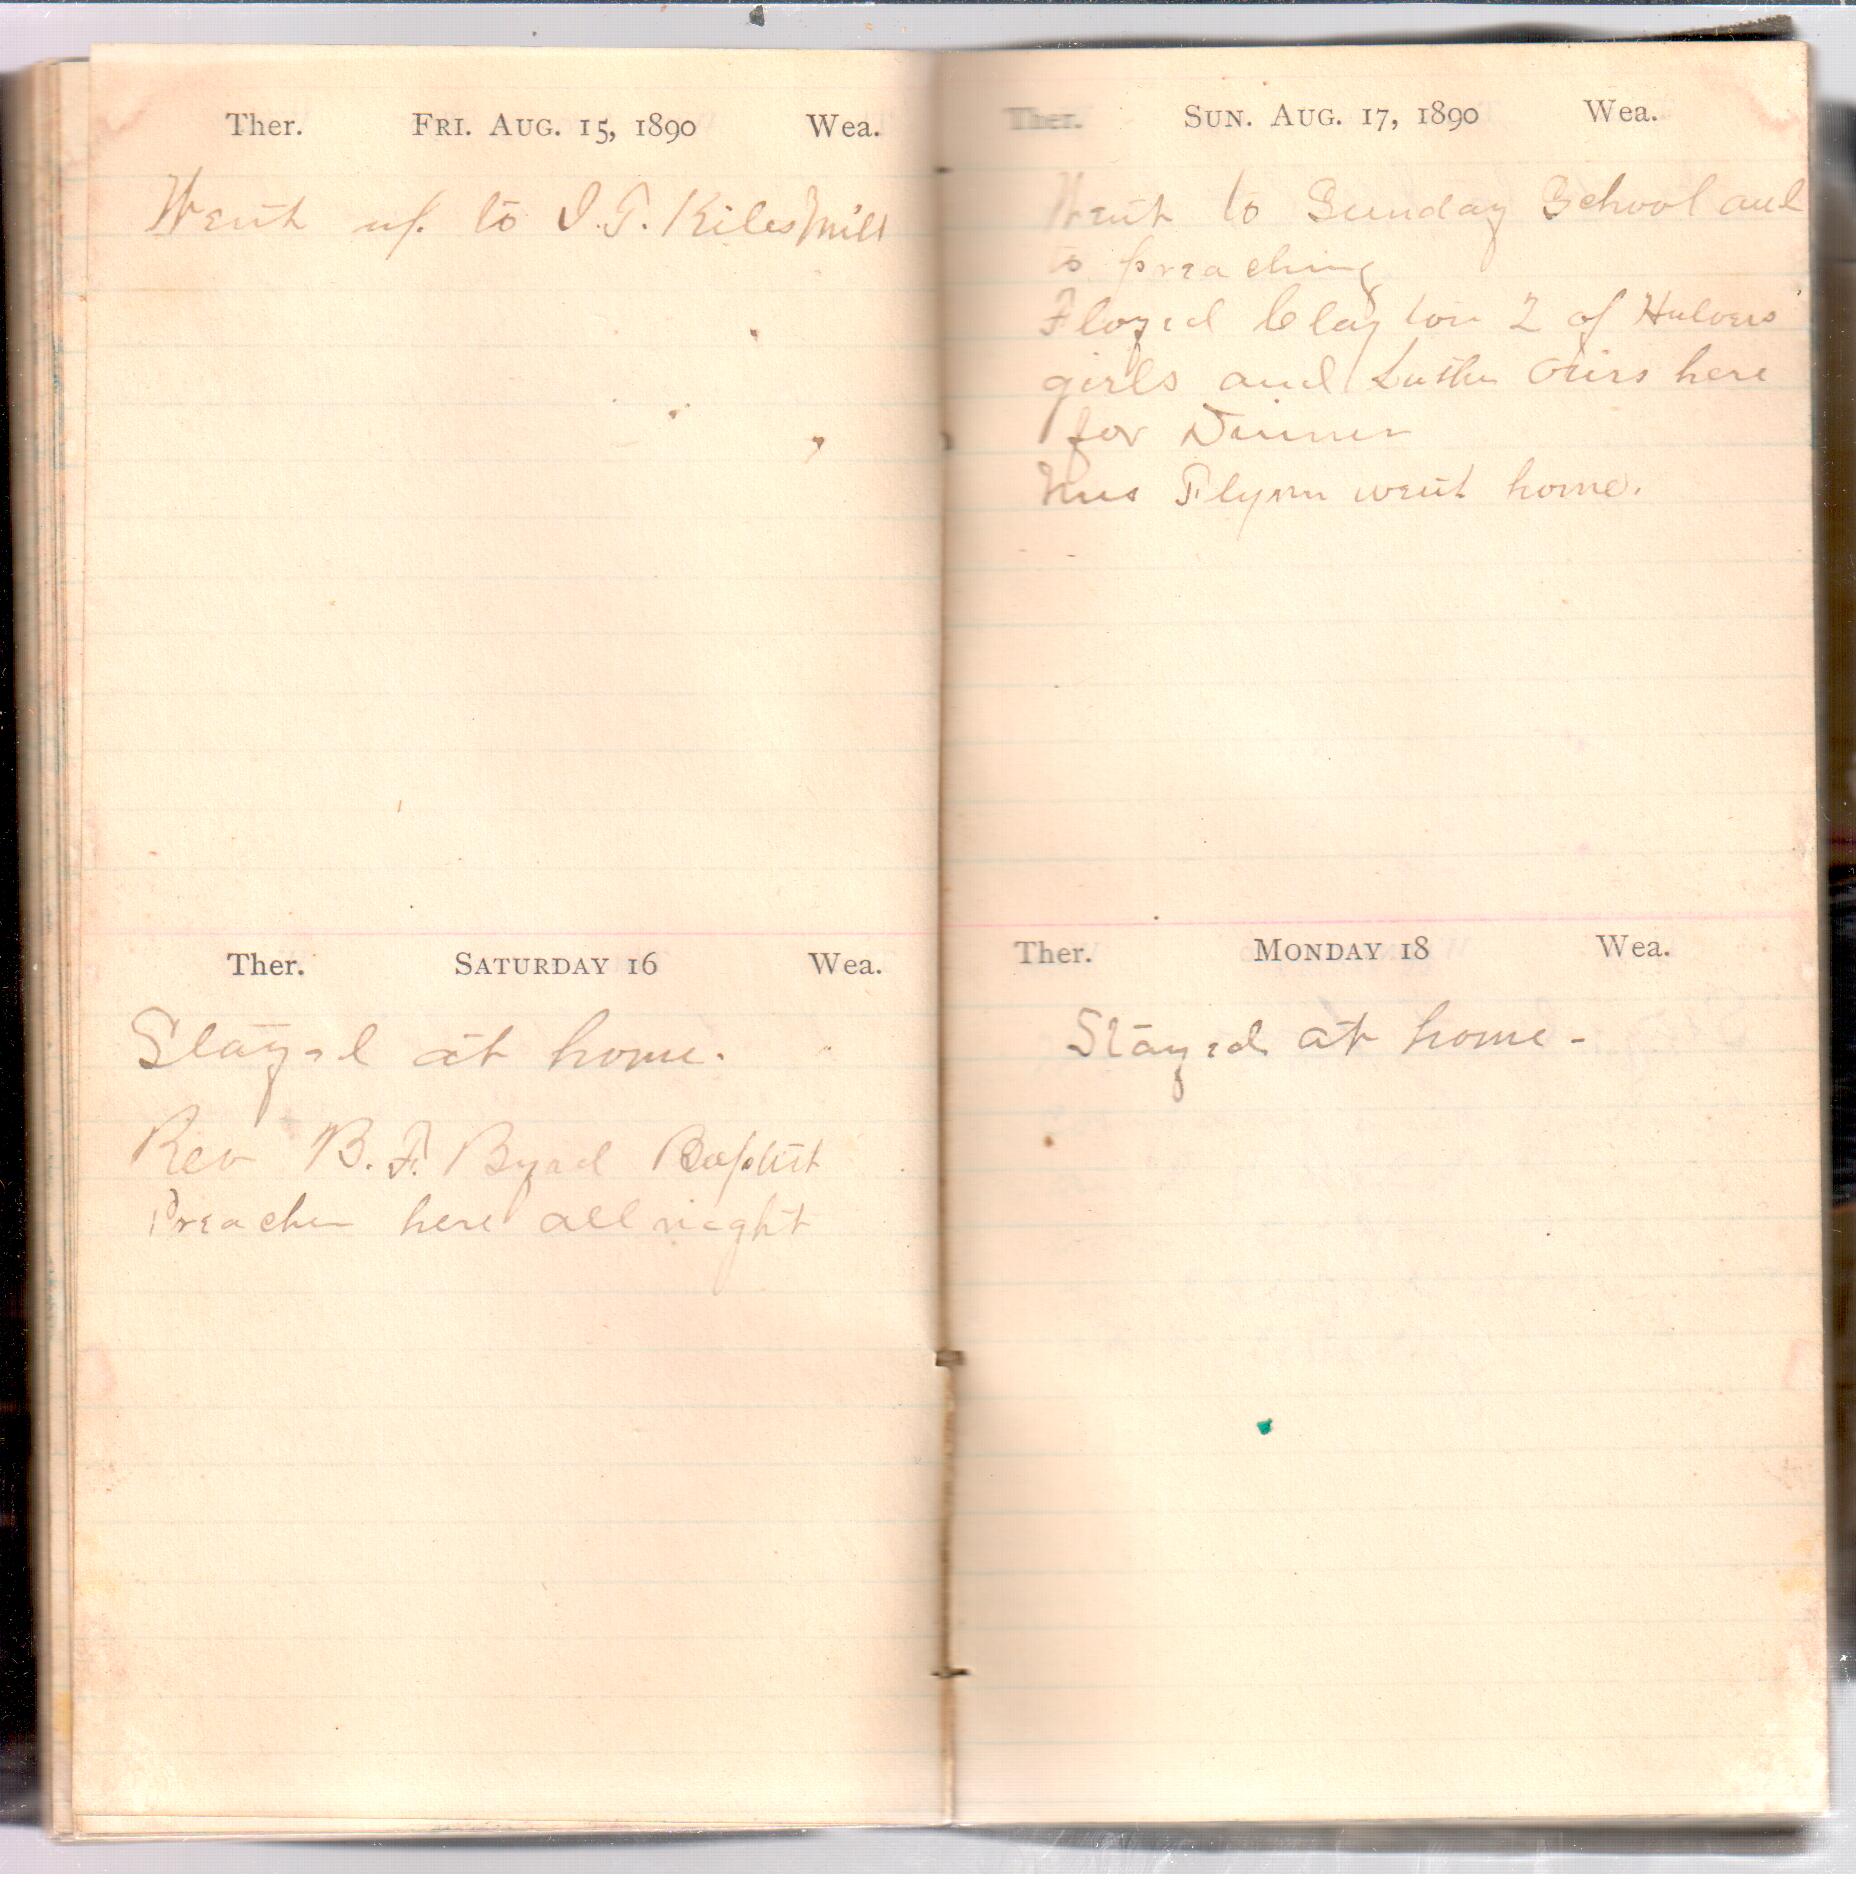 Ther. Fri. Aug. 15, 1890 Wea.
Went up to I.T. Kiles Mill
Ther. Saturday 16 Wea.
Stayed at home.
Rev B. F. Byrd Baptist
Preacher here all night
Ther. Sun. Aug. 17, 1890 Wea.
Went to Sunday School and
to preaching
Floyed Clayton 2 of Hulvers
girls and Luther here
for Dinner
Flynn went home.
Ther. Monday 18 Wea.
Stayed at home -